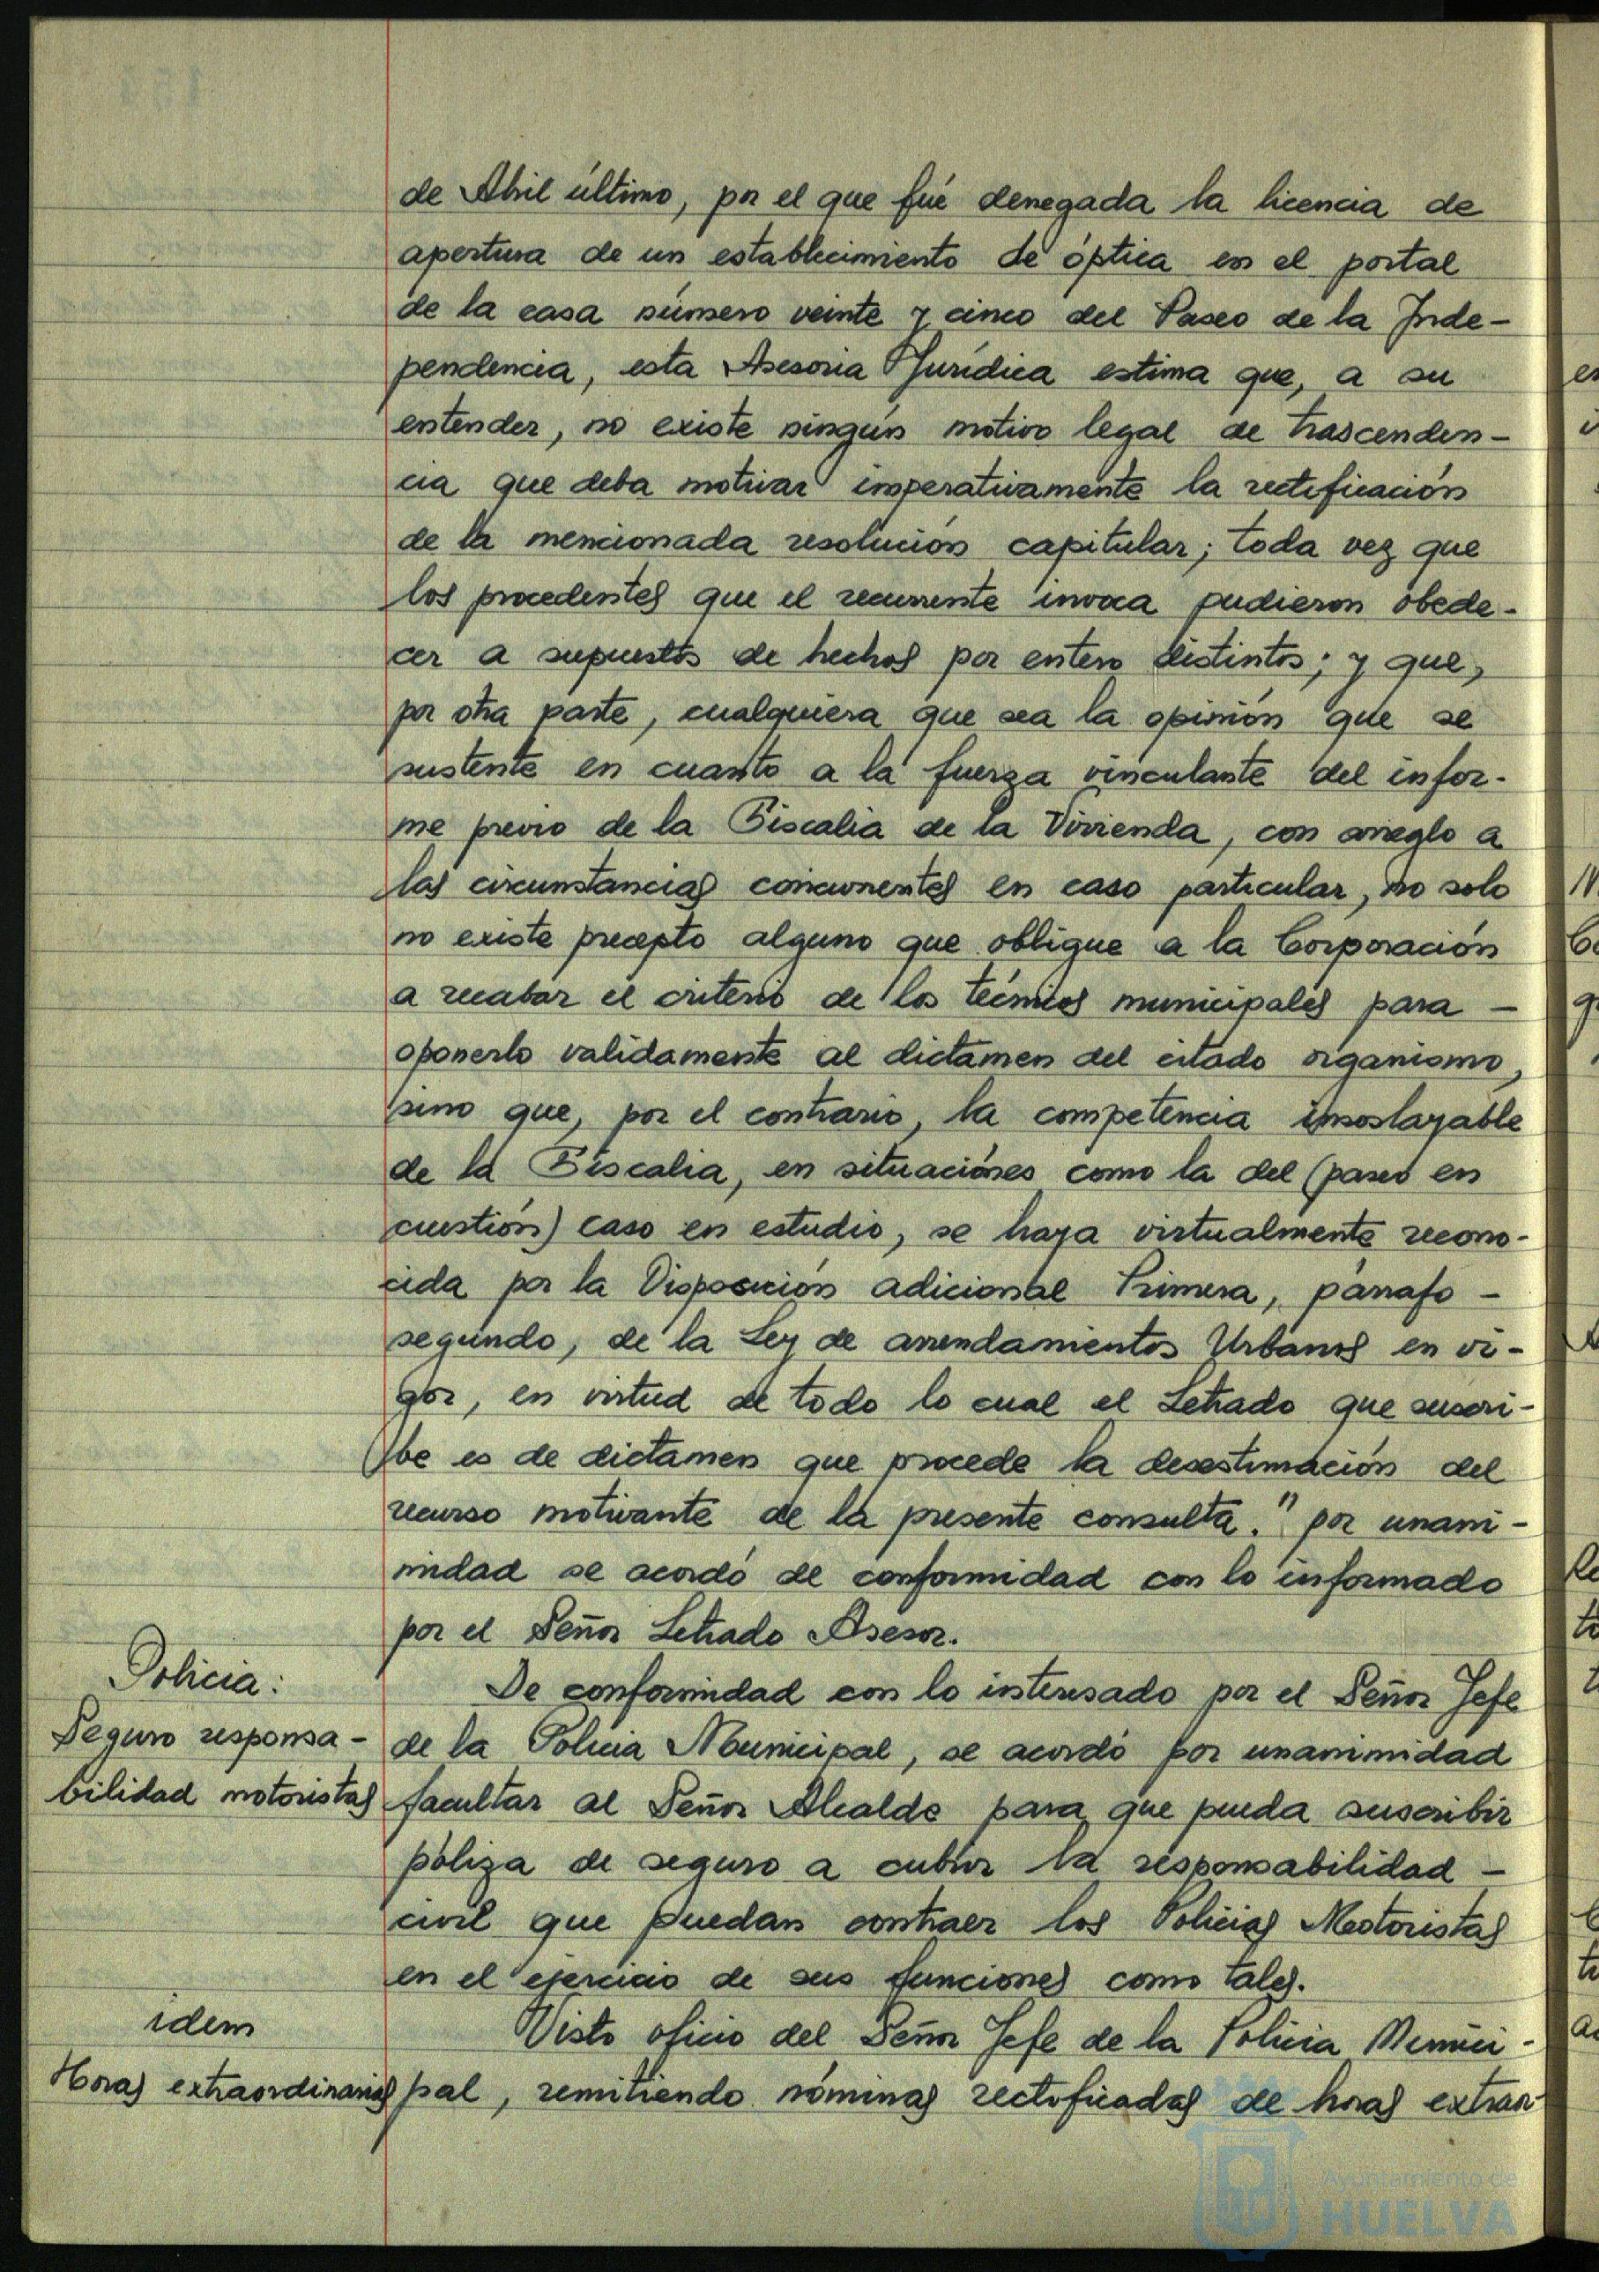 de Abril último, por el que fué denegada la licencia de
apertura de un establecimiento de óptica en el portal
de la casa número veinte y cinco del Paseo de la Inde-
pendencia, esta Asesoria Jurídica estima que, a su
entender, no existe ningún motivo legal de trascenden-
cia que deba motivar imperativamente la rectificación
de la mencionada resolución capitular; toda vez que
los procedentes que el recurrente invoca pudieron obede-
cer a supuestos de hechos por entero distintos; y que,
por otra parte, cualquiera que sea la opinión que se
sustente en cuanto a la fuerza vinculante del infor-
me previo de la Fiscalia de la Vivienda, con arreglo a
las circunstancias concurrentes en caso particular, no solo
no existe precepto alguno que obligue a la Corporación
a recabar el criterio de los técnicos municipales para -
oponerlo validamente al dictamen del citado organismo,
sino que, por el contrario, la competencia insoslayable
de la Fiscalia, en situaciónes como la del (paseo en
cuestión) caso en estudio, se haya virtualmente recono-
cida por la Disposición adicional Primera, párrafo -
segundo, de la Ley de arrendamientos Urbanos en vi-
gor, en virtud de todo lo cual el Letrado que suscri-
be es de dictamen que procede la desestimación del
recurso motivante de la presente consulta." por unani-
midad se acordó de conformidad con lo informado
por el Señor Letrado Asesor.
Policia:
Seguro responsa-
bilidad motoristas
De conformidad con lo interesado por el Señor Jefe
de la Policia Municipal, se acordó por unanimidad
facultar al Señor Alcalde para que pueda suscribir
póliza de seguro a cubrir la responsabilidad -
civil que puedan contraer los Policias Motoristas
en el ejercicio de sus funciones como tales.
idem
Horas extraordinarias
Visto oficio del Señor Jefe de la Policia Munici-
pal, remitiendo nóminas rectificadas de horas extraor-
Ayuntamiento de
HUELVA